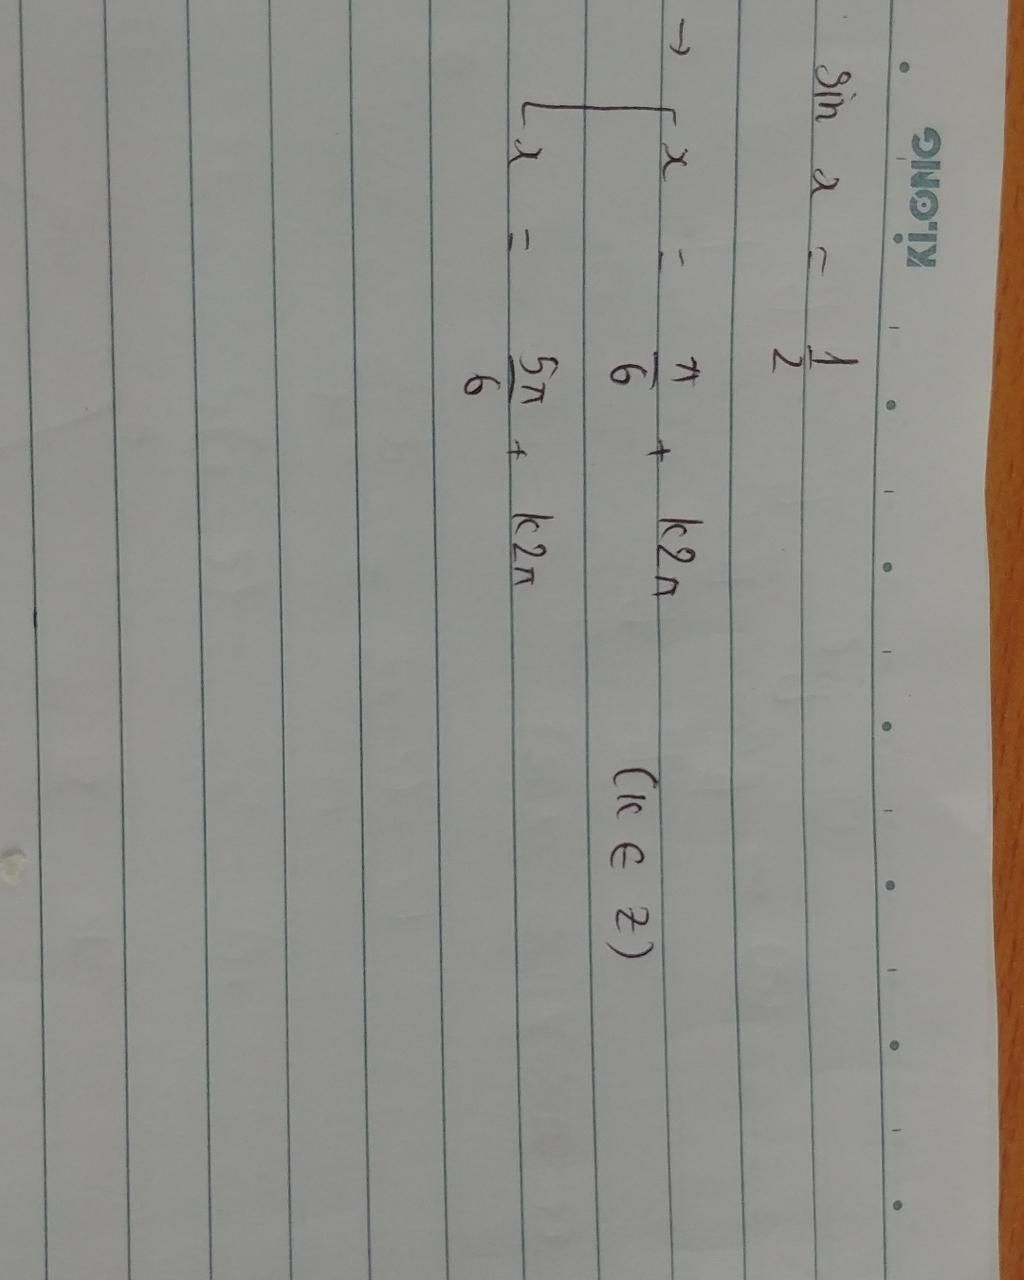 Ki.ONG
sin x = 1/2
→ [ x = π/6 + k2π
(k ∈ Z)
[ x = 5π/6 + k2π